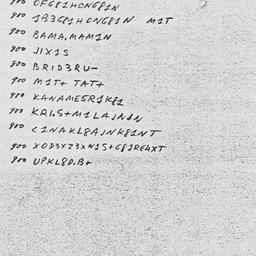 900 OFG81HONG81N
900 1B3G81HONG81N M1T
900 BAMA.MAM1N
900 JIX1S
900 BRID3RU-
900 M1T+ TAT+
900 KANAMESR1K81
900 KRI.S+M1LAJNJN
900 C1NAKL8AJNK81NT
900 XOD3XZ3XW1S+G81RE4XT
900 UPKL8D.B+